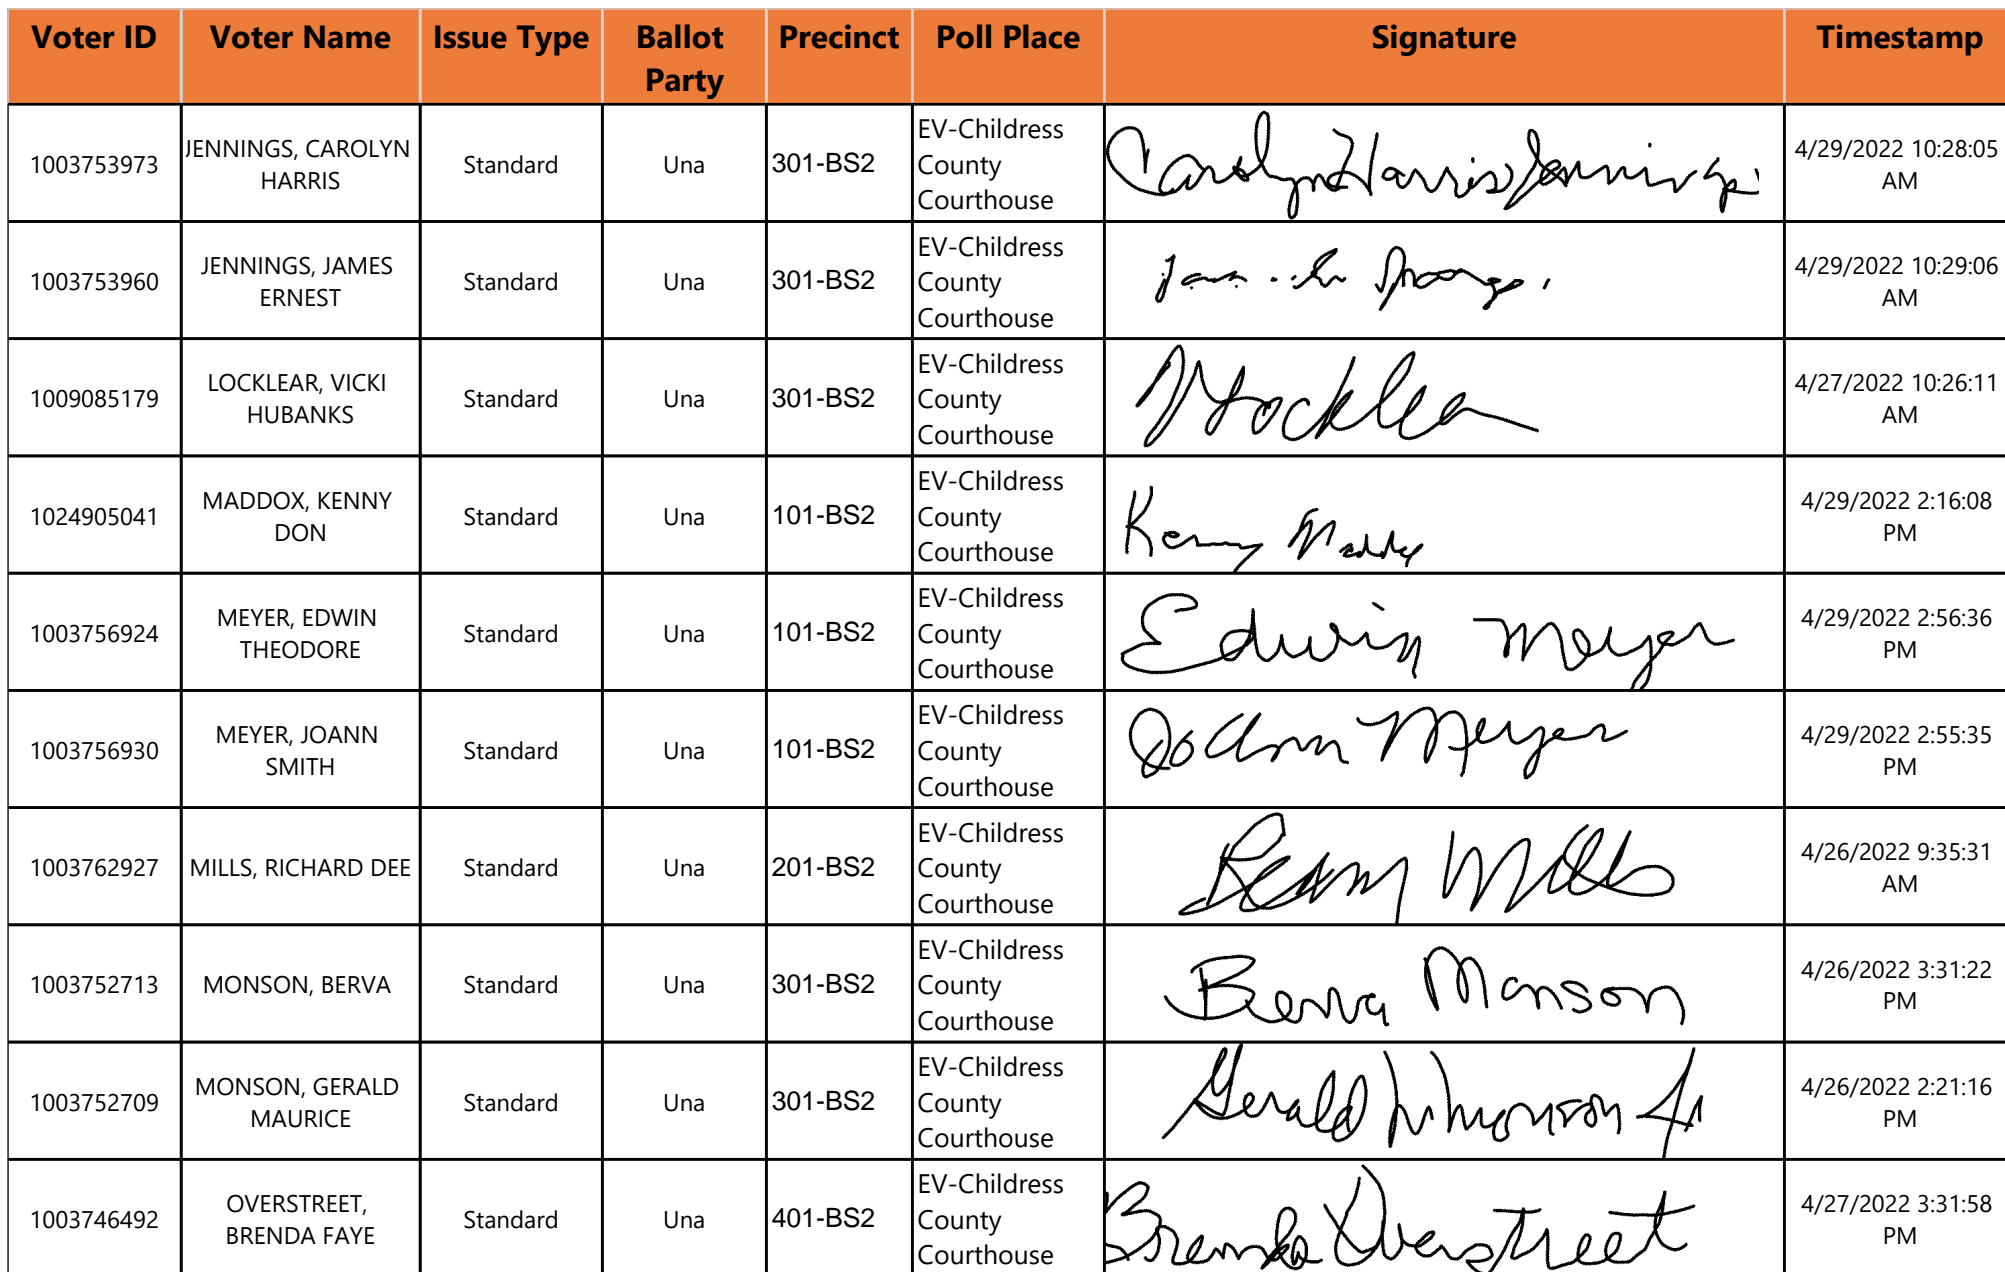 Voter ID Voter Name Issue Type Ballot Party Precinct Poll Place Signature Timestamp
1003753973 JENNINGS, CAROLYN HARRIS Standard Una 301-BS2 EV-Childress County Courthouse Carolyn Harris Jennings 4/29/2022 10:28:05 AM
1003753960 JENNINGS, JAMES ERNEST Standard Una 301-BS2 EV-Childress County Courthouse 4/29/2022 10:29:06 AM
1009085179 LOCKLEAR, VICKI HUBANKS Standard Una 301-BS2 EV-Childress County Courthouse 4/27/2022 10:26:11 AM
1024905041 MADDOX, KENNY DON Standard Una 101-BS2 EV-Childress County Courthouse Kenny 4/29/2022 2:16:08 PM
1003756924 MEYER, EDWIN THEODORE Standard Una 101-BS2 EV-Childress County Courthouse Edwin Meyer 4/29/2022 2:56:36 PM
1003756930 MEYER, JOANN SMITH Standard Una 101-BS2 EV-Childress County Courthouse JoAnn Meyer 4/29/2022 2:55:35 PM
1003762927 MILLS, RICHARD DEE Standard Una 201-BS2 EV-Childress County Courthouse Mills 4/26/2022 9:35:31 AM
1003752713 MONSON, BERVA Standard Una 301-BS2 EV-Childress County Courthouse Berva Monson 4/26/2022 3:31:22 PM
1003752709 MONSON, GERALD MAURICE Standard Una 301-BS2 EV-Childress County Courthouse Gerald M Monson Jr 4/26/2022 2:21:16 PM
1003746492 OVERSTREET, BRENDA FAYE Standard Una 401-BS2 EV-Childress County Courthouse Brenda Overstreet 4/27/2022 3:31:58 PM